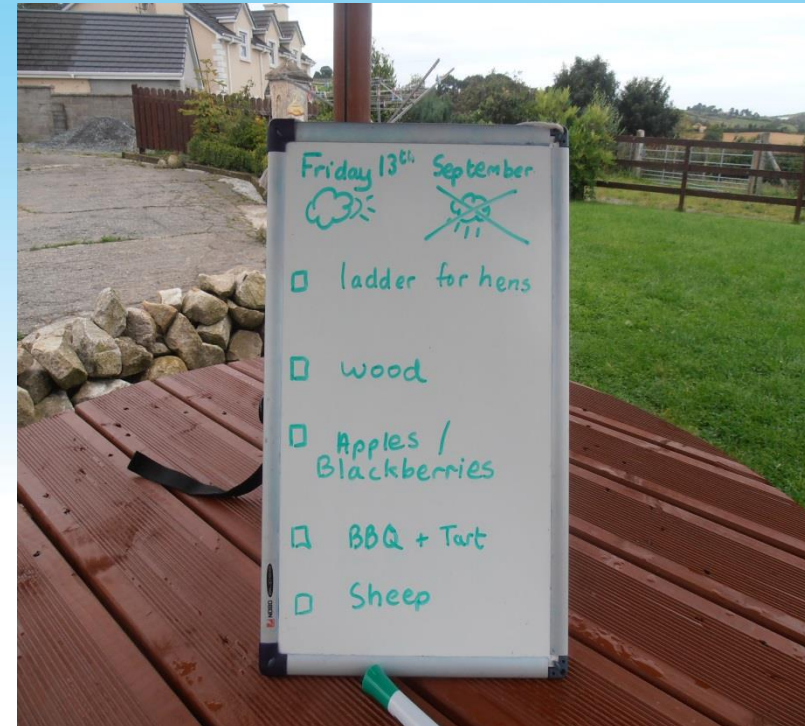 Friday 13th September
ladder for hens
wood
Apples /
Blackberries
BBQ + Tart
Sheep